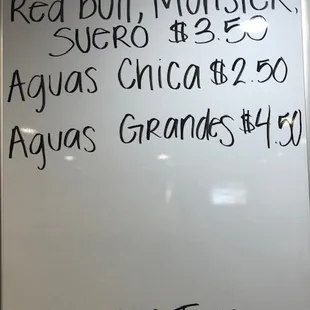 Red Bull, Monster,
SUERO $3.50
AGUAS CHICA $2.50
AGUAS GRANDES $4.50